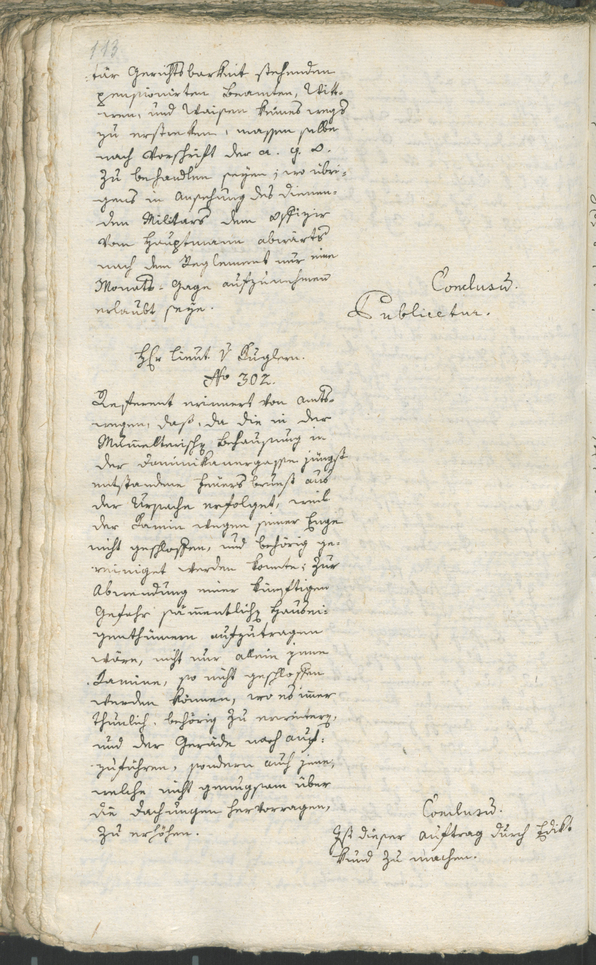 113
tär Gerichtsbarkeit stehenden
pensionirten Beamten, Witt-
wen, und Waisen keines wegs
zu erstreken, massen selbe
nach Vorschrift der a. g. O.
zu behandlen seyen; wo übri-
gens in Ansehung des dienen-
den Militars dem Offizier
vom Hauptmann abwärts
nach dem Reglement nur eine
Monats-Gage aufzunehmen
erlaubt seye.
Conclusũ.
Publicetur.
Hr Lieut v Kuglern.
No 302.
Referent erinnert von Amts-
wegen, daß, da die in der
Behausung in
der Dominikanergasse jüngst
entstandene Feuersbrunst aus
der Ursache erfolget, weil
der Kamin wegen seiner Enge
nicht geschloffen, und behörig ge-
reiniget werden konnte; zur
Abwendung einer künftigen
Gefahr sam̃entlichen Hausei-
genthümern aufzutragen
wäre, nicht nur allein jene
Kamine, so nicht geschloffen
werden können, wo es im̃er
thunlich, behörig zu erweitern,
und der Geräde nach auf-
zuführen, sondern auch jene,
welche nicht genugsam über
die Dachungen hervorragen,
zu erhöhen.
Conclusũ.
Ist dieser Auftrag durch Edik.
kund zu machen.